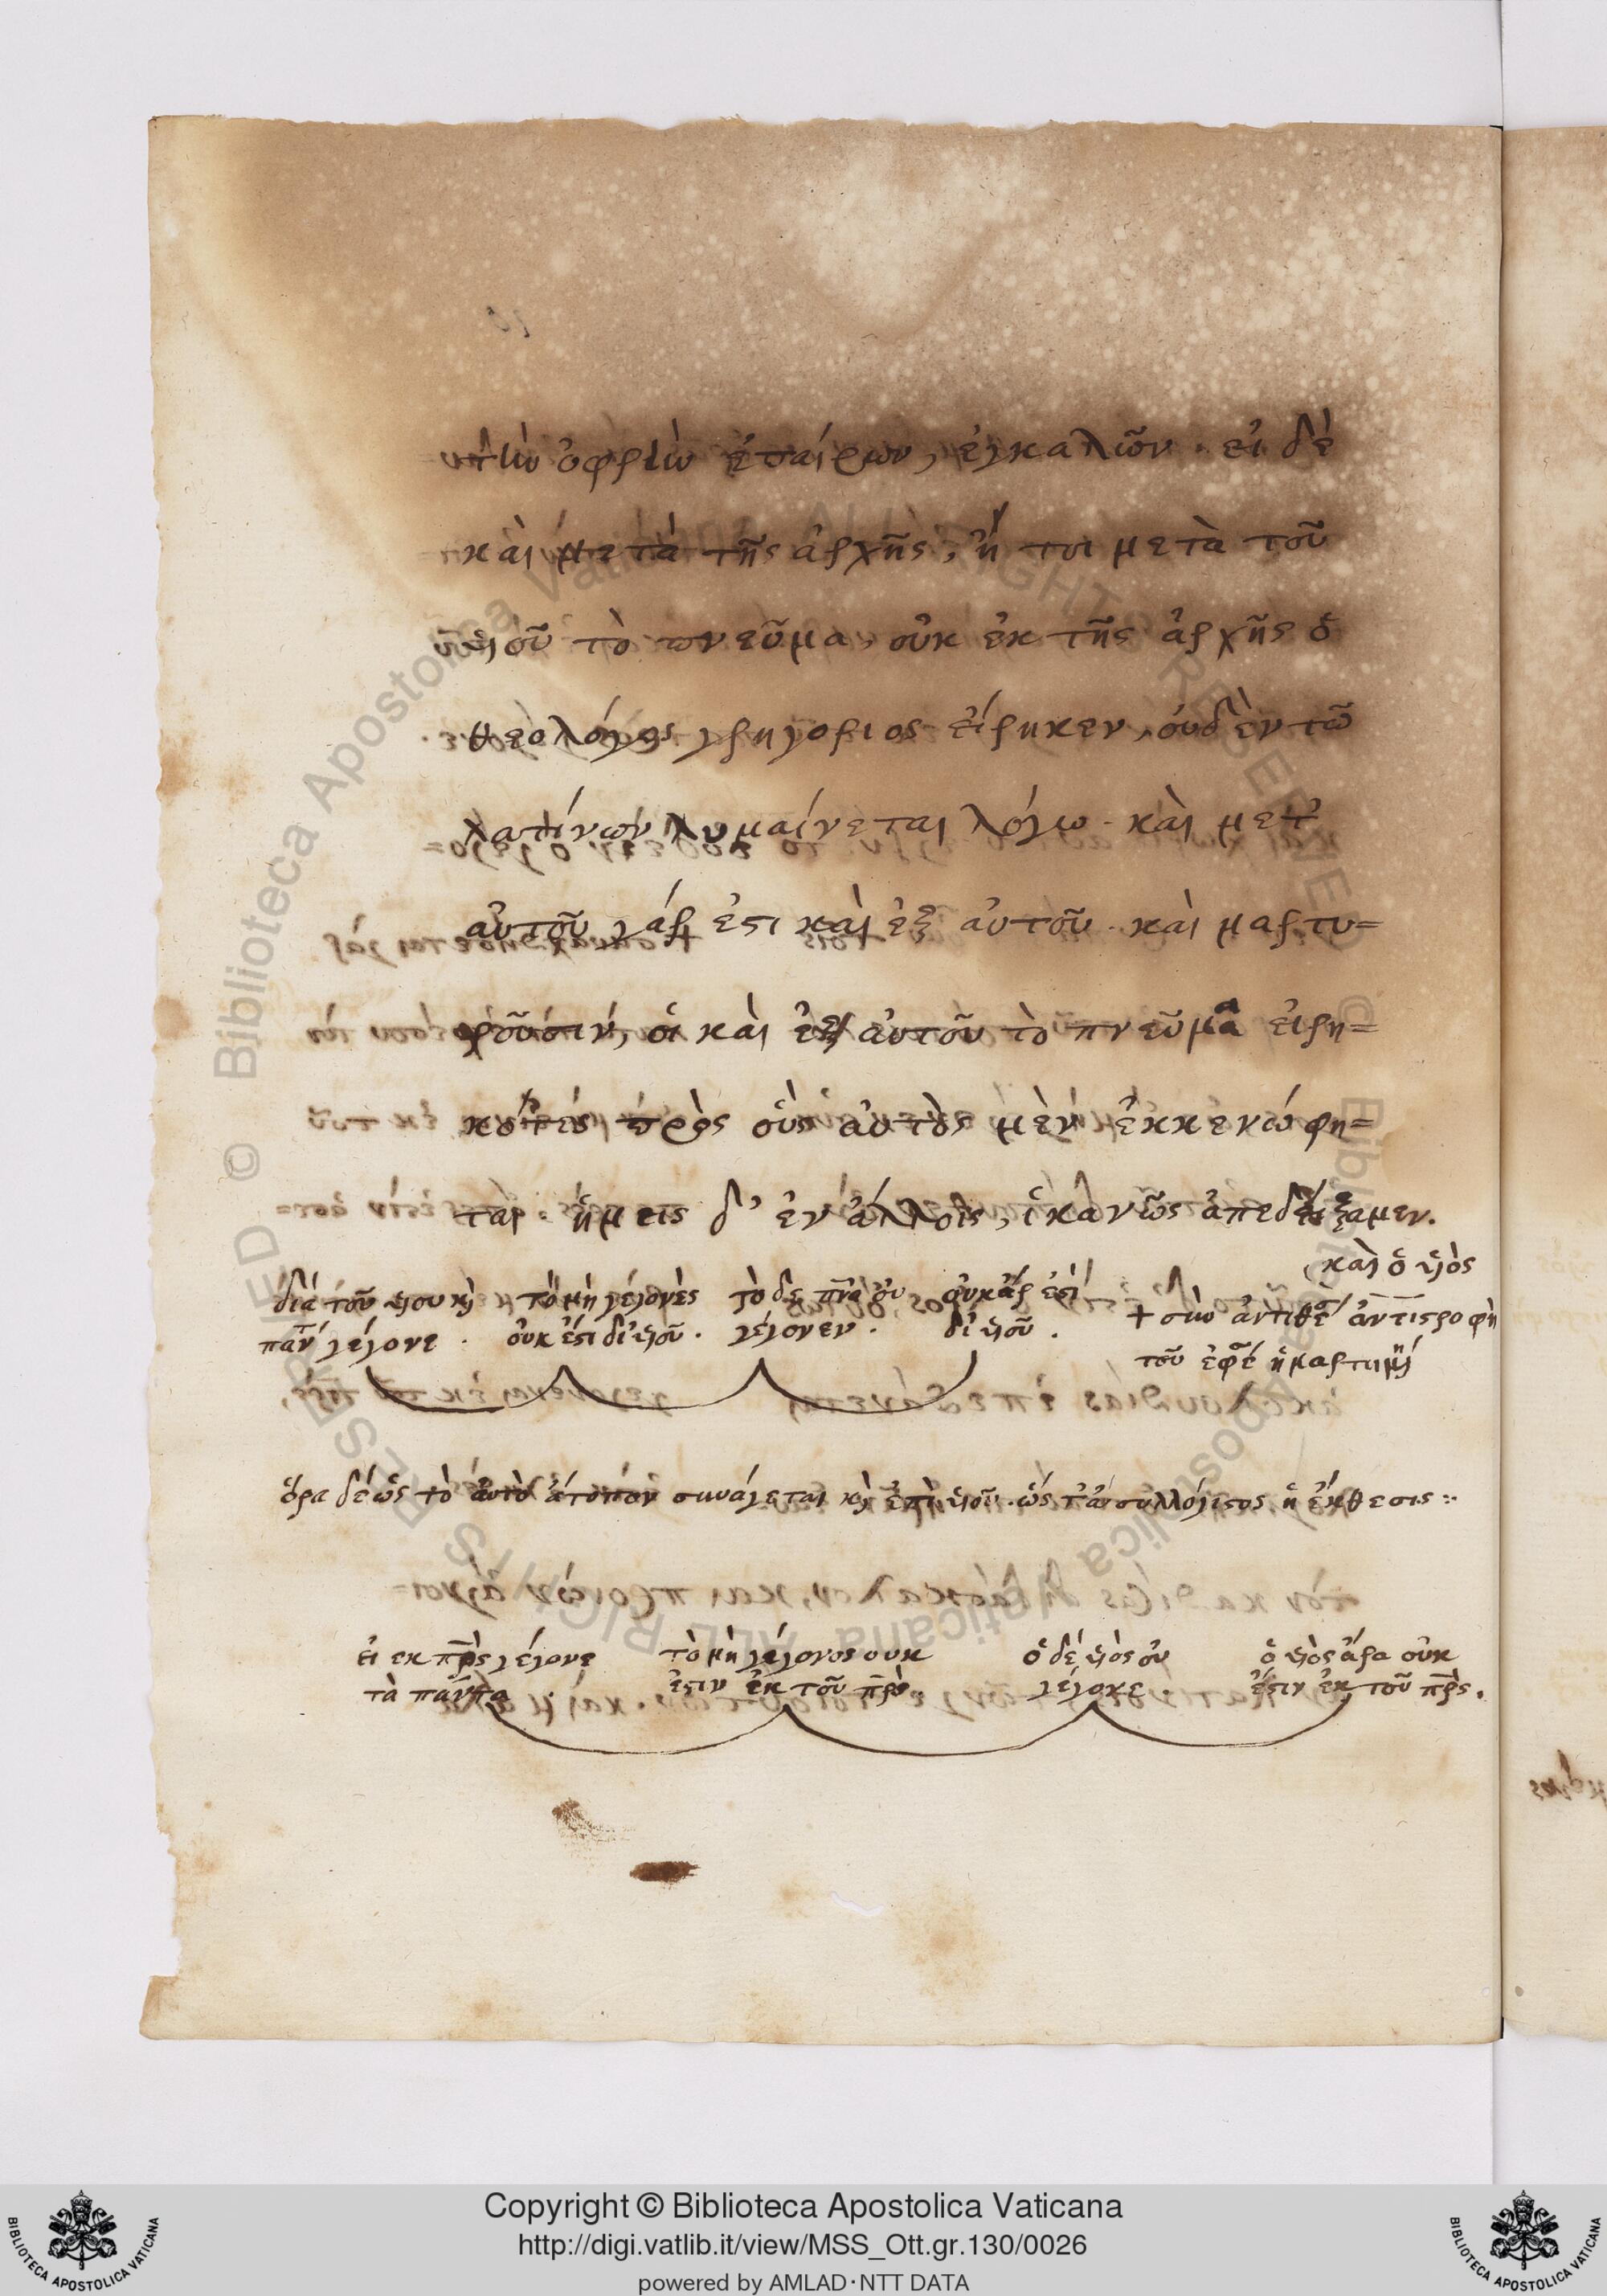 τὴν ὀφρὺν ἐπαίρων, ἐγκαλῶν. εἰ δὲ
καὶ μετὰ τῆς ἀρχῆς, ἤ τοι μετὰ τοῦ
υἱοῦ τὸ πνεῦμα, οὐκ ἐκ τῆς ἀρχῆς ὁ
θεολόγος γρηγόριος εἴρηκεν, οὐδὲν τῶ
λατίνων λυμαίνεται λόγω. καὶ μετ'
αὐτοῦ γάρ ἐστι καὶ ἐξ αὐτοῦ. καὶ μαρτυ=
ροῦσιν, οἱ καὶ ἐξ αὐτοῦ τὸ πνεῦμα εἰρη=
κότες πρὸς οὓς αὐτὸς μὲν ἐκκεκώφη=
ται. ἡμεῖς δ' ἐν ἄλλοις, ἱκανῶς ἀπεδείξαμεν.
καὶ ὁ υἱὸς
διὰ τοῦ υἱου τὸ μὴ γεγονὸς τὸ δὲ πνᾶ οὐ οὐκ ἄρ ἐστὶ
+ σὺν ἀντιθέσει ἀντιστροφὴ
πᾶν γέγονε. οὐκ ἔστι δι' υἱοῦ. γέγονεν. δι' υἱοῦ.
τοῦ
ὅρα δέ ὡς τὸ αὐτὸ ἄτοπον συνάγεται κὶ ἐπὶ υἱοῦ. ὡς ἀσυλλόγιστος ἡ ἔκθεσις :·
εἰ εκ πρς γέγονε τὸ μὴ γεγονος ουκ ὁ δέ υἱὸς οὐ ὁ υἱὸς ἄρα οὐκ
τὰ πάντα. ἔστιν ἐκ τοῦ πρς. γέγονε ἔστιν ἐκ τοῦ πρς.
Copyright © Biblioteca Apostolica Vaticana
http://digi.vatlib.it/view/MSS_Ott.gr.130/0026
powered by AMLAD·NTT DATA
BIBLIOTECA APOSTOLICA VATICANA
BIBLIOTECA APOSTOLICA VATICANA
© Biblioteca Apostolica Vaticana ALL RIGHTS RESERVED
© Biblioteca Apostolica Vaticana ALL RIGHTS RESERVED